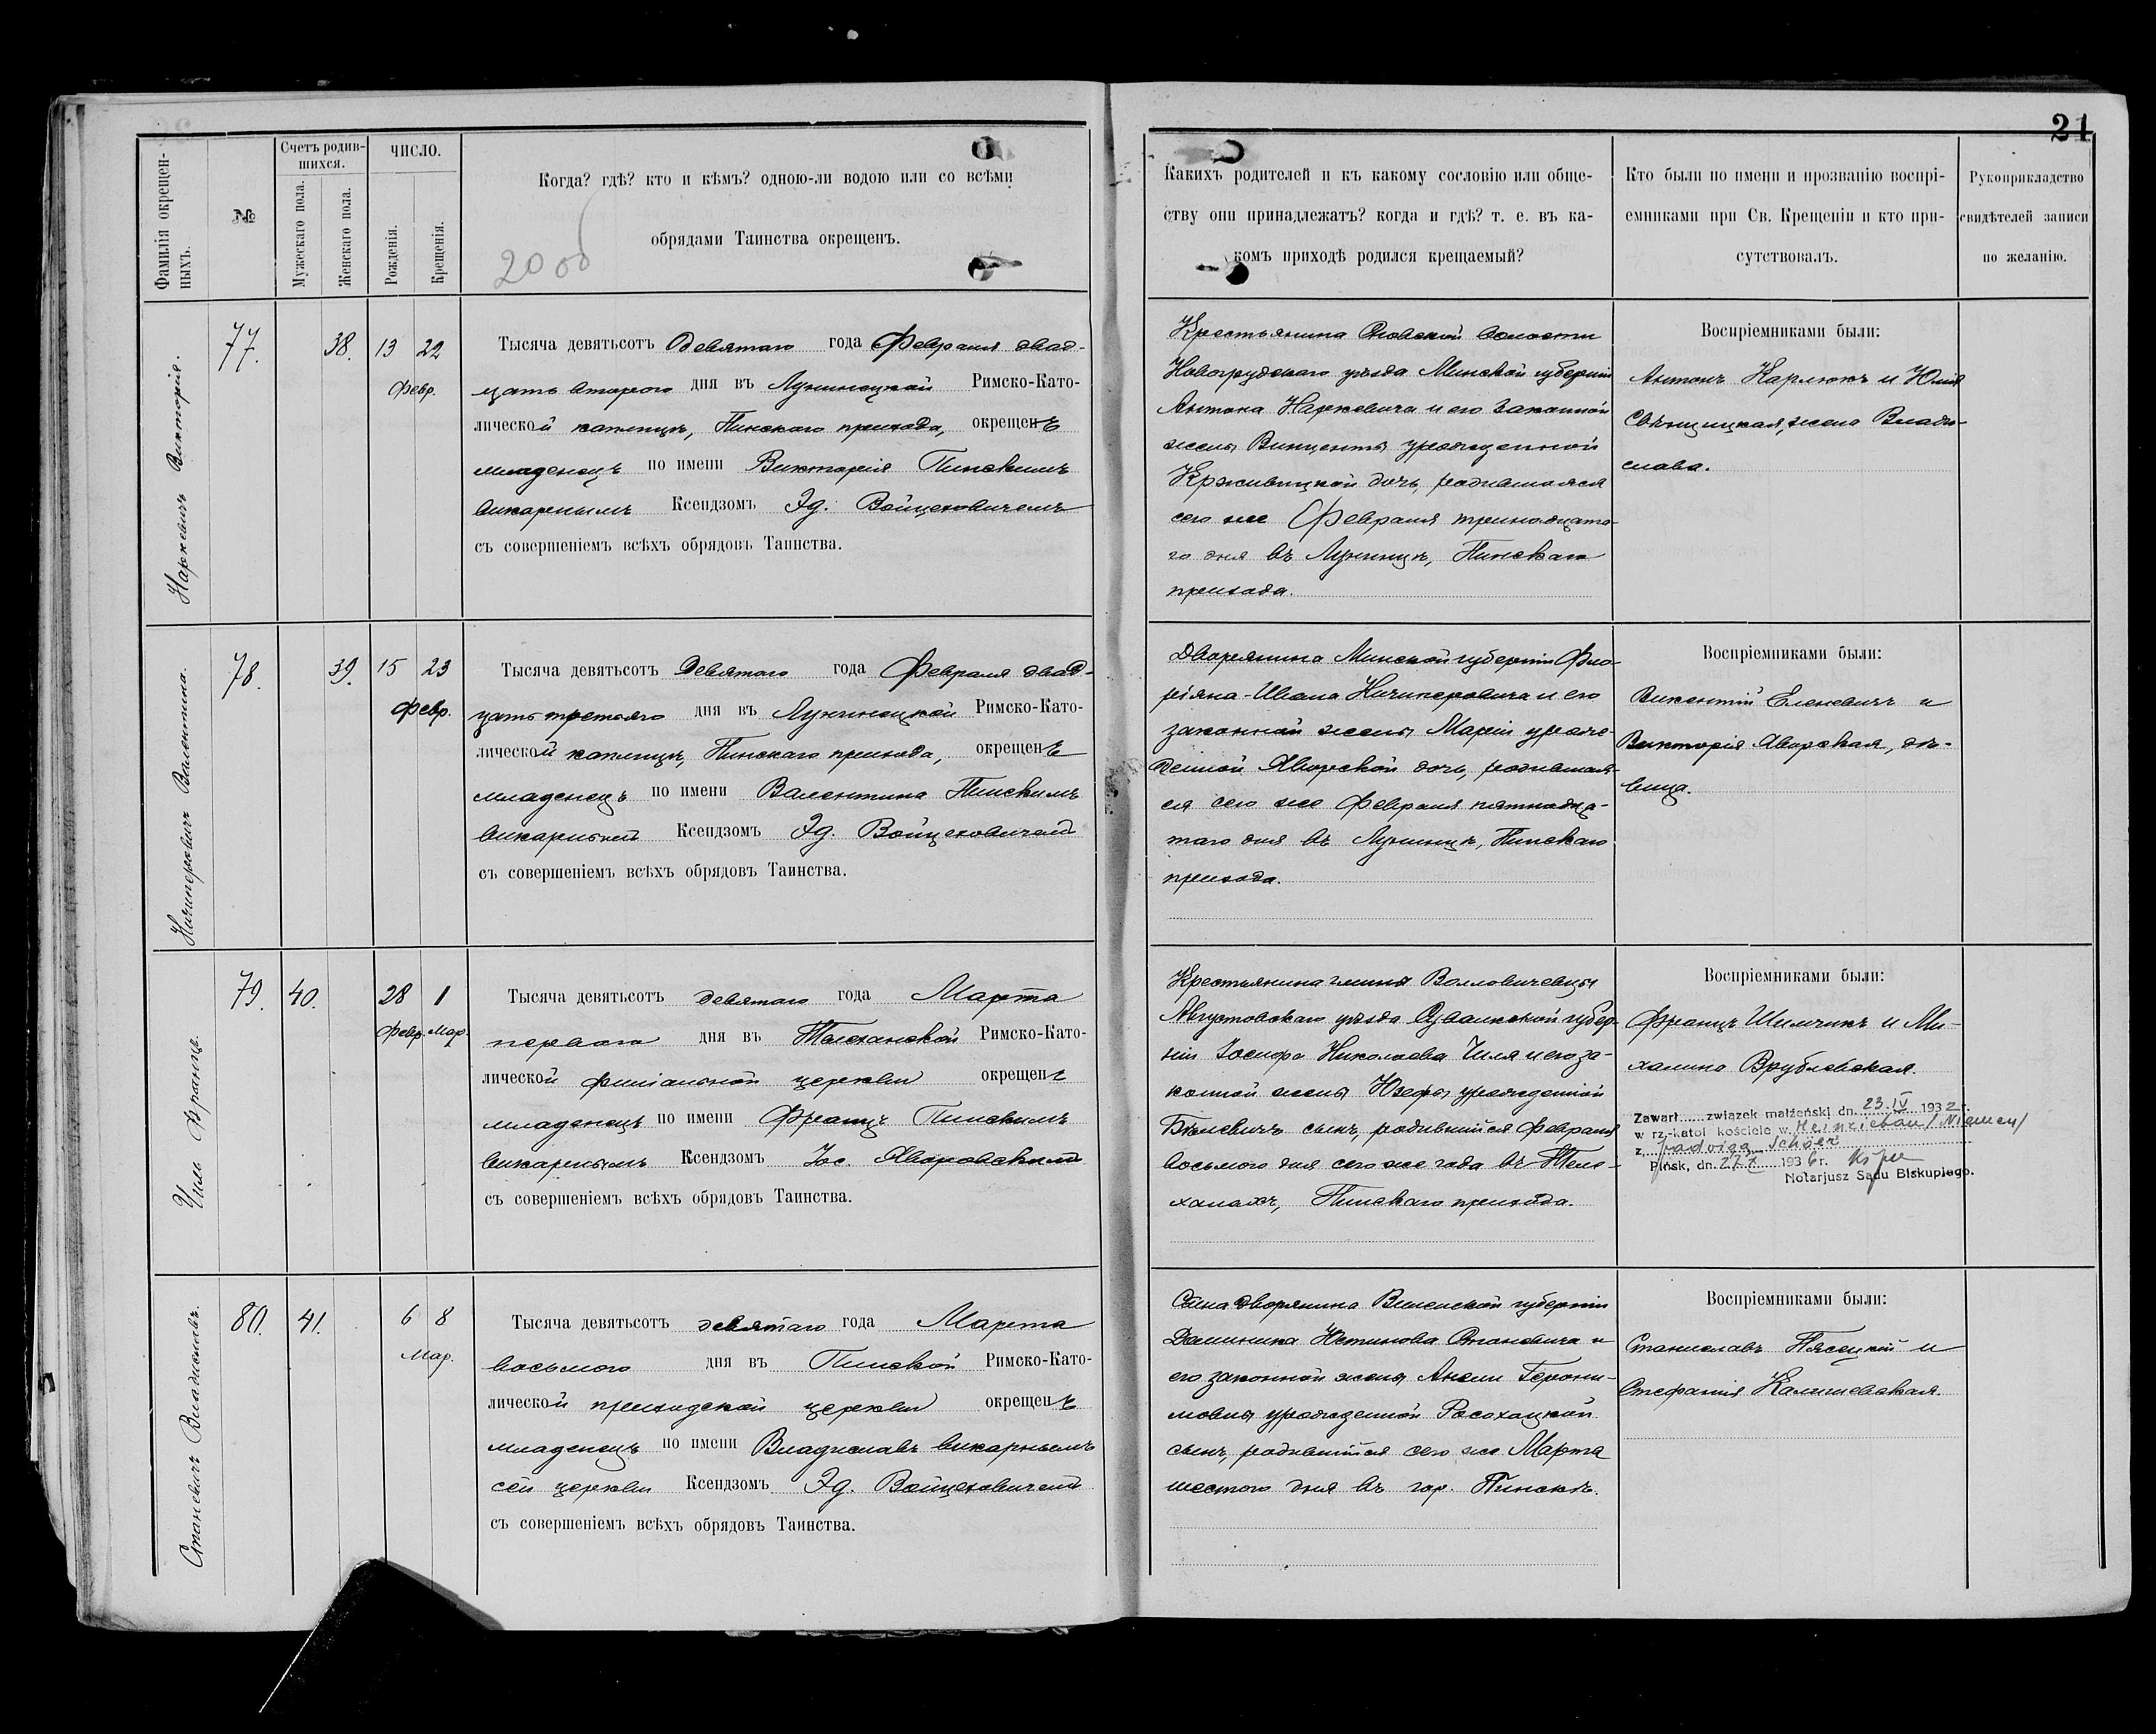 21
Фамилія окрещен-
ныхъ.
№
Счетъ родив-
шихся.
Мужескаго пола.
Женскаго пола.
ЧИСЛО.
Рожденія.
Крещенія.
Когда? гдѣ? кто и кѣмъ? одною-ли водою или со всѣми
обрядами Таинства окрещенъ.
2000
Какихъ родителей и къ какому сословію или обще-
ству они принадлежатъ? когда и гдѣ? т. е. въ ка-
комъ приходѣ родился крещаемый?
Кто были по имени и прозванію воспрі-
емниками при Св. Крещеніи и кто при-
сутствовалъ.
Рукоприкладство
свидѣтелей записи
по желанію.
Наркевичъ Викторія.
77.
38.
13
22
Февр.
Тысяча девятьсотъ девятаго года Февраля двад-
цать второго дня въ Лунинецкой Римско-Като-
лической каплицѣ, Пинскаго прихода, окрещенъ
младенецъ по имени Викторія Пинскимъ
викарнымъ Ксендзомъ Эд. Войцеховичемъ
съ совершеніемъ всѣхъ обрядовъ Таинства.
Крестьянина волости
Новогрудскаго уѣзда Минской губерніи
Антона Наркевича и его законной
жены Винценты урожденной
дочь, родившаяся
сего же Февраля тринадцата-
го дня въ Лунинцѣ, Пинскаго
прихода.
Воспріемниками были:
Антонъ Карлюкъ и Юлія
Свѣнцицкая, жена Влади-
слава.
Ничипоровичъ Валентина.
78.
39.
15
23
Февр.
Тысяча девятьсотъ Девятаго года Февраля двад-
цать третьяго дня въ Лунинецкой Римско-Като-
лической каплицѣ, Пинскаго прихода, окрещенъ
младенецъ по имени Валентина Пинскимъ
викарнымъ Ксендзомъ Эд. Войцеховичемъ
съ совершеніемъ всѣхъ обрядовъ Таинства.
Дворянина Минской губерніи Фло-
ріяна-Ивана Ничипоровича и его
законной жены Маріи урож-
денной Яворской дочь, родившая-
ся сего же Февраля пятнадца-
таго дня въ Лунинцѣ, Пинскаго
прихода.
Воспріемниками были:
Викентій Еленевичъ и
Викторія Яворская, дѣ-
вица.
Чиль Францъ.
79.
40.
28
1
Февр.
Мар.
Тысяча девятьсотъ девятаго года Марта
перваго дня въ Телеханской Римско-Като-
лической филіальной церкви окрещенъ
младенецъ по имени Францъ Пинскимъ
викарнымъ Ксендзомъ Іос. Яворовскимъ
съ совершеніемъ всѣхъ обрядовъ Таинства.
Крестьянина гмины Волловичевцы
Августовскаго уѣзда Сувалкской губер-
ніи Іосифа Николаева Чиля и его за-
конной жены Юзефы урожденной
Бѣлевичъ сынъ, родившійся Февраля
восьмого дня сего же года въ Теле-
ханахъ, Пинскаго прихода.
Воспріемниками были:
Францъ Шимчикъ и Ми-
халина Врублевская.
Zawarł związek małżeński dn. 23.IV 1932 r.
w rz.-katol kościele w Heinrichau / Niemcy/
z Jadwigą Schöer
Pińsk, dn. 27.X 1936 r.
Notarjusz Sądu Biskupiego.
Станевичъ Владиславъ.
80.
41.
6
8
Мар.
Тысяча девятьсотъ девятаго года Марта
восьмого дня въ Пинской Римско-Като-
лической приходской церкви окрещенъ
младенецъ по имени Владиславъ викарнымъ
сей церкви Ксендзомъ Эд. Войцеховичемъ
съ совершеніемъ всѣхъ обрядовъ Таинства.
Сына дворянина Виленской губерніи
Доминика Юстинова Станевича и
его законной жены Анели Герони-
мовны урожденной Росохацкой
сынъ, родившійся сего же Марта
шестого дня въ гор. Пинскѣ.
Воспріемниками были:
Станиславъ Пясецкій и
Стефанія Калишевская.